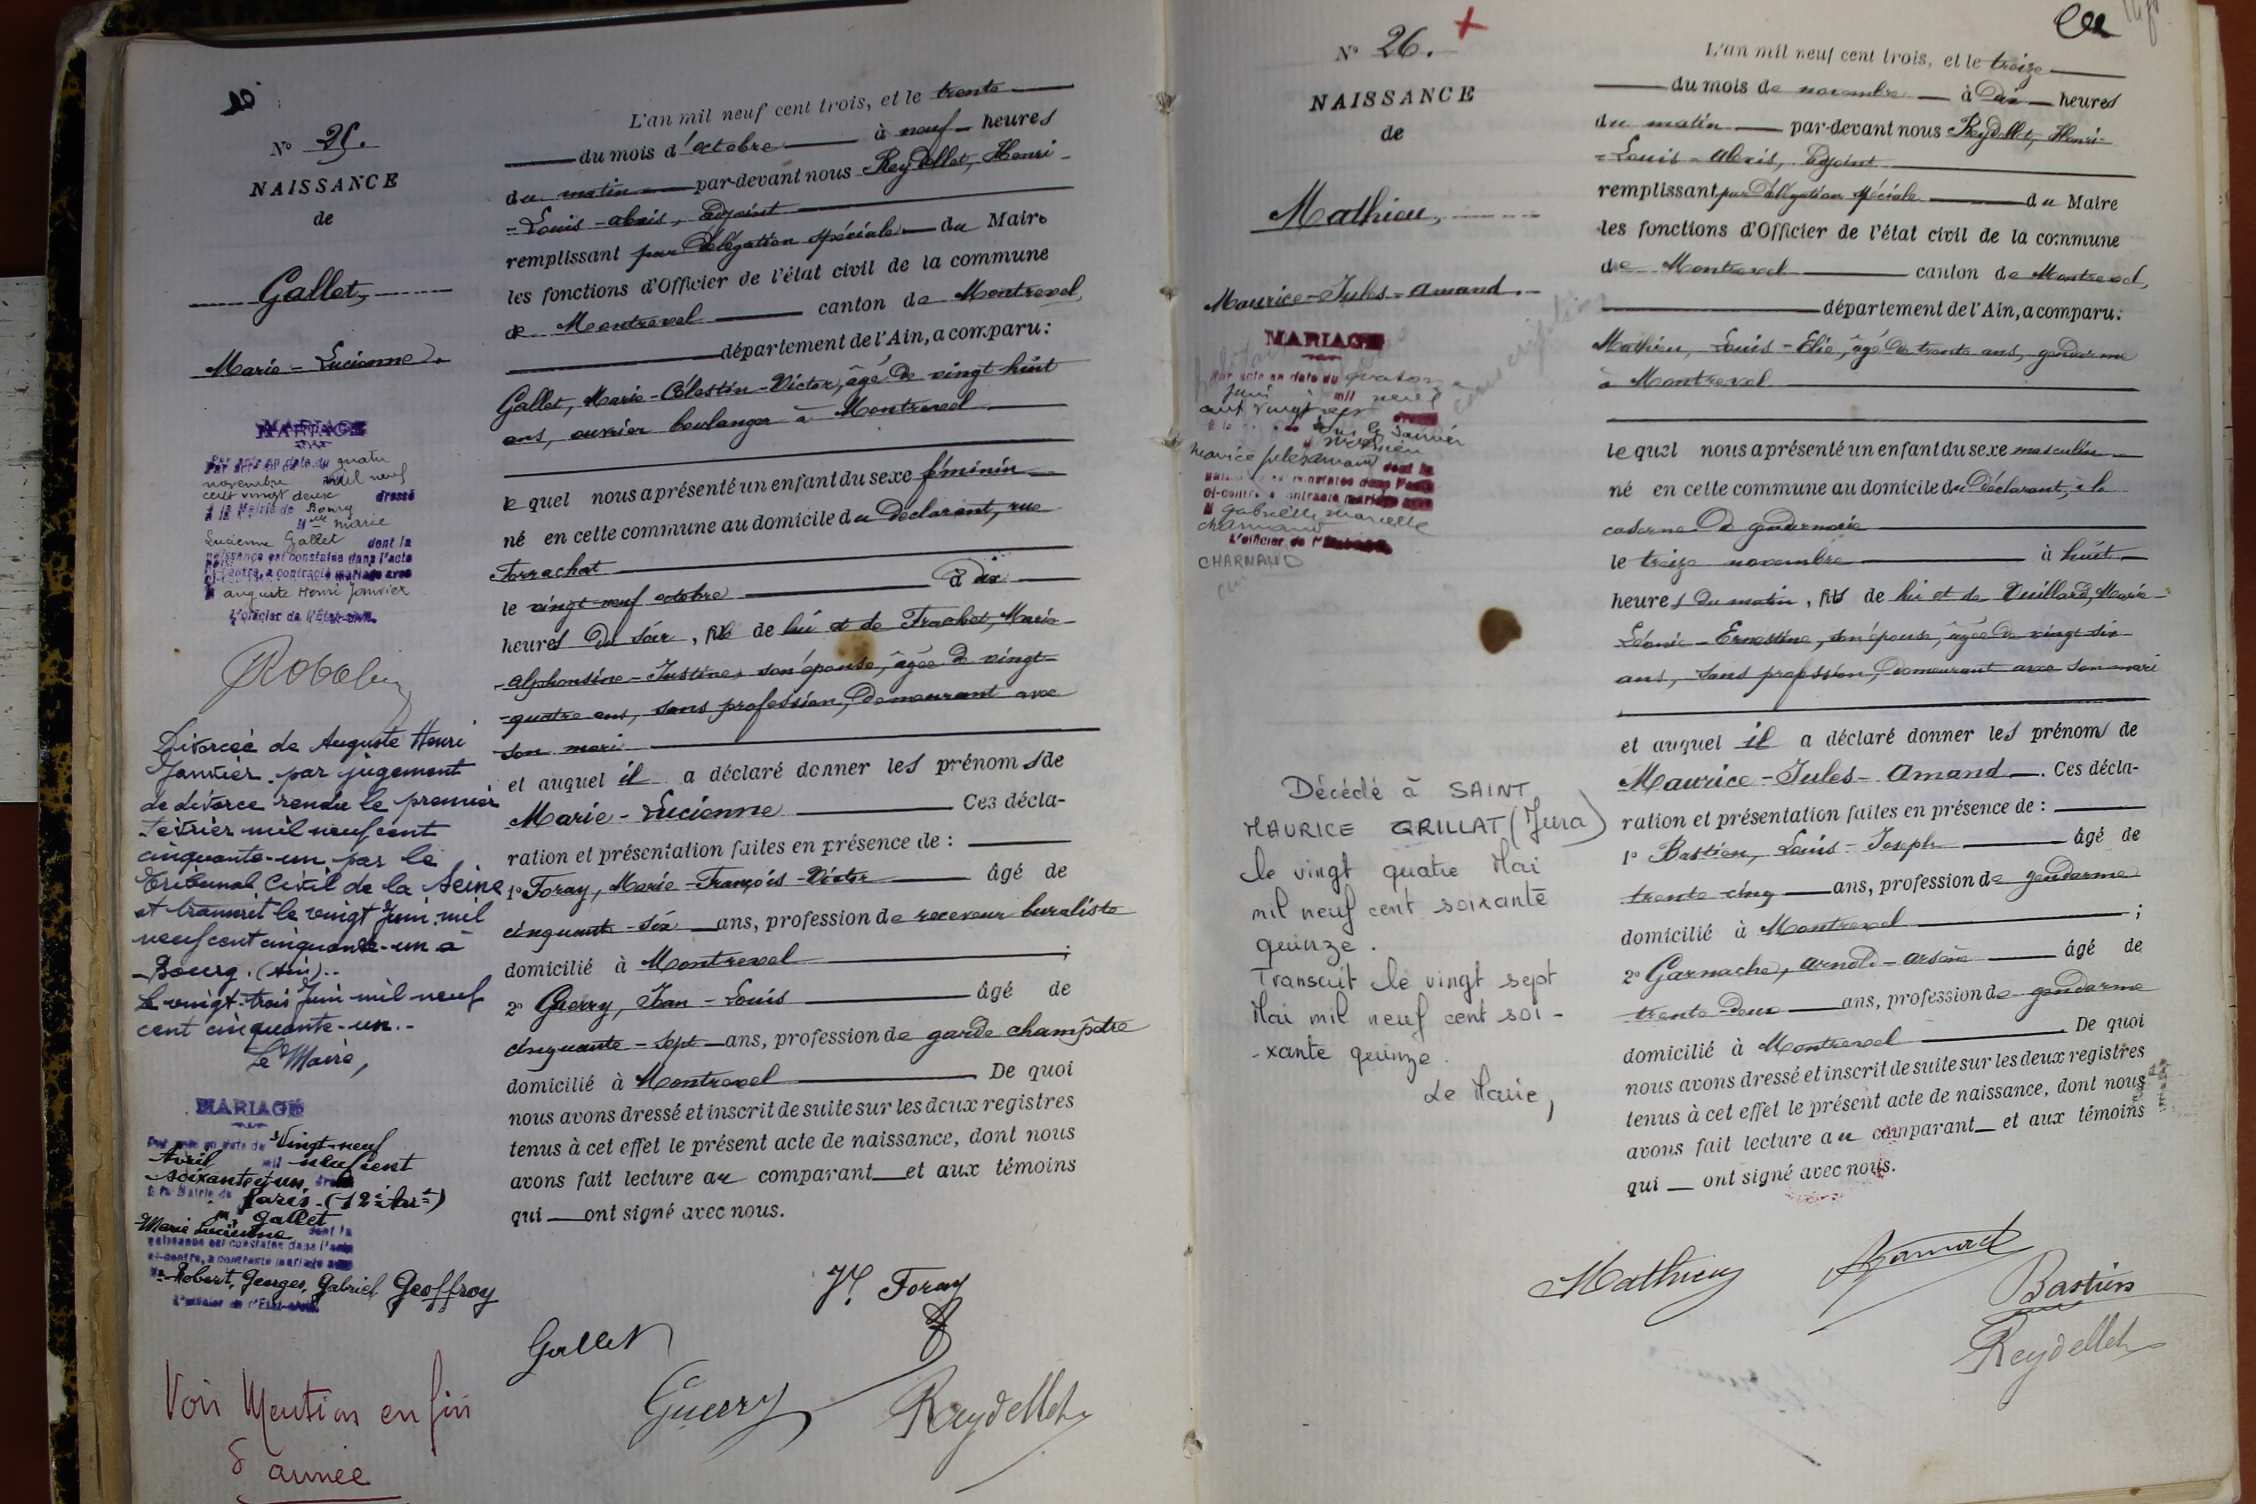 N° 25.
NAISSANCE
de
Gallet,
Marie-Lucienne.
MARIAGE
Par acte en date du quatre
novembre mil neuf
cent vingt deux dressé
à la Mairie de Bourg
Mlle Marie
Lucienne Gallet dont la
naissance est constatée dans l'acte
ci-contre, a contracté mariage avec
M auguste Henri Janvier
L'officier de l'État-civil.
Divorcée de Auguste Henri
Janvier par jugement
de divorce rendu le premier
février mil neuf cent
cinquante-un par le
Tribunal Civil de la Seine
et transcrit le vingt Juin mil
neuf cent cinquante-un à
Bourg. (Ain)..
Le vingt-trois Juin mil neuf
cent cinquante-un.-
Le Maire,
MARIAGE
Par acte en date du Vingt-neuf
Avril mil neuf cent
soixante et un dressé
à la Mairie de Paris-(12e Arrt)
M Gallet
Marie Lucienne dont la
naissance est constatée dans l'acte
ci-contre, a contracté mariage avec
M. Robert, Georges, Gabriel Geoffroy
L'officier de l'État-civil.
Voir Mention en fin
d'année
L'an mil neuf cent trois, et le trente
du mois d'octobre à neuf heures
du matin par-devant nous Reydellet, Henri-
-Louis-alexis, adjoint
remplissant par délégation spéciale du Maire
les fonctions d'Officier de l'état civil de la commune
de Montrevel canton de Montrevel,
département de l'Ain, a comparu:
Gallet, Marie-Célestin-Victor, âgé de vingt huit
ans, ouvrier boulanger à Montrevel
lequel nous a présenté un enfant du sexe féminin
né en cette commune au domicile du déclarant, rue
Farrachat
le vingt neuf octobre à dix
heures du soir, fils de lui et de Frachet, Marie-
-alphonsine-Justine, son épouse, âgée de vingt-
-quatre ans, sans profession, demeurant avec
son mari
et auquel il a déclaré donner les prénoms de
Marie-Lucienne Ces décla-
ration et présentation faites en présence de :
1° Foray, Marie-François-Victor âgé de
cinquante-six ans, profession de receveur buraliste
domicilié à Montrevel ;
2° Guerry, Jean-Louis âgé de
cinquante-sept ans, profession de garde champêtre
domicilié à Montrevel De quoi
nous avons dressé et inscrit de suite sur les deux registres
tenus à cet effet le présent acte de naissance, dont nous
avons fait lecture au comparant et aux témoins
qui ont signé avec nous.
Foray
Gallet
Guerry
Reydellet
N° 26.
NAISSANCE
de
Mathieu,
Maurice-Jules-Amand.
MARIAGE
Par acte en date du quatorze
Juin mil neuf
cent vingt
Maurice Jules Amand dont la
naissance est constatée dans l'acte
ci-contre a contracté mariage avec
M Gabrielle Marcelle
Charnand
L'officier de l'État-civil.
CHARNAND
Décédé à SAINT
MAURICE GRILLAT (Jura)
le vingt quatre Mai
mil neuf cent soixante
quinze.
Transcrit le vingt sept
Mai mil neuf cent soi-
-xante quinze.
Le Maire,
L'an mil neuf cent trois, et le treize
du mois de novembre à Dix heures
du matin par-devant nous Reydellet, Henri-
-Louis-alexis, adjoint
remplissant par délégation spéciale du Maire
les fonctions d'Officier de l'état civil de la commune
de Montrevel canton de Montrevel,
département de l'Ain, a comparu:
Mathieu, Louis-Elie, âgé de trente ans, gendarme
à Montrevel
lequel nous a présenté un enfant du sexe masculin
né en cette commune au domicile du déclarant, à la
caserne de gendarmerie
le treize novembre à huit
heures du matin, fils de lui et de Vuillard, Marie-
Léonie-Ernestine, son épouse, âgée de vingt six
ans, sans profession, demeurant avec son mari
et auquel il a déclaré donner les prénoms de
Maurice-Jules-Amand. Ces décla-
ration et présentation faites en présence de :
1° Bastien, Louis-Joseph âgé de
trente cinq ans, profession de gendarme
domicilié à Montrevel ;
2° Garnache, Arnold-Arsène âgé de
trente-deux ans, profession de gendarme
domicilié à Montrevel. De quoi
nous avons dressé et inscrit de suite sur les deux registres
tenus à cet effet le présent acte de naissance, dont nous
avons fait lecture au comparant et aux témoins
qui ont signé avec nous.
Mathieu
Bastien
Reydellet